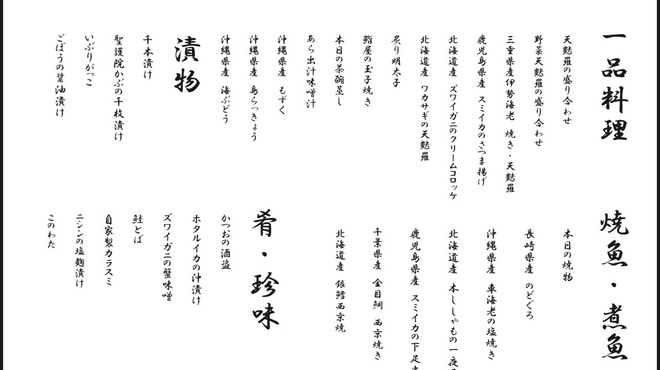 一品料理
天麩羅の盛り合わせ
野菜天麩羅の盛り合わせ
三重県産伊勢海老 焼き・天麩羅
鹿児島県産 スミイカのさつま揚げ
北海道産 ズワイガニのクリームコロッケ
北海道産 ワカサギの天麩羅
炙り明太子
鮨屋の玉子焼き
本日の茶碗蒸し
あら出汁味噌汁
沖縄県産 もずく
沖縄県産 島らっきょう
沖縄県産 海ぶどう
漬物
千本漬け
聖護院かぶの千枚漬け
いぶりがっこ
ごぼうの醤油漬け
焼魚・煮魚
本日の焼物
長崎県産 のどぐろ
沖縄県産 車海老の塩焼き
北海道産 本ししゃもの一夜
鹿児島県産 スミイカの下足
千葉県産 金目鯛 西京焼き
北海道産 銀鱈西京焼
肴・珍味
かつおの酒盗
ホタルイカの沖漬け
ズワイガニの蟹味噌
鮭とば
自家製カラスミ
ニシンの塩麹漬け
このわた